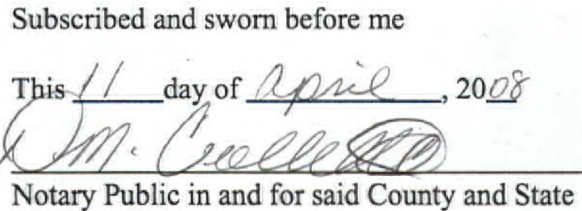 Subscribed and sworn before me
This 11 day of April, 2008
D M.
Notary Public in and for said County and State